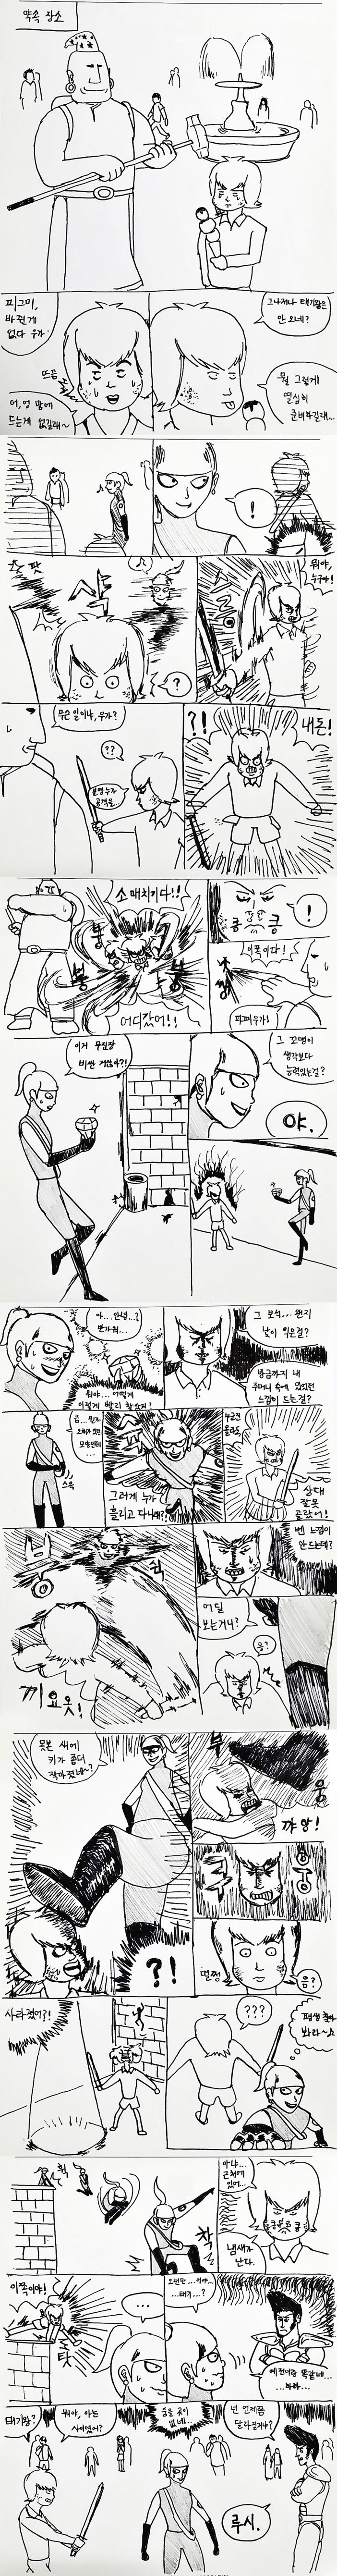 약속 장소
피그미,
바뀐게
없다 우가
뜨끔
어, 엉 맘에
드는게 없길래~
그나저나 태기왕은
안 오네?
뭘 그렇게
열심히
준비하길래~
!
샥
?
뭐야,
누구야!
무슨 일이냐, 우가?
??
?!
내돈!
소매치기다!!
어디갔어!!
킁
킁
!
이쪽이다!
이거 무진장
비싼 거잖아?!
그 꼬맹이
생각보다
능력있는걸?
야.
아... 안녕..?
반가워...
뭐야... 어떻게
이렇게 빨리 찾았지?
그 보석... 왠지
낯이 익은걸?
방금까지 내
주머니 속에 있었던
느낌이 드는걸?
스윽
그러게 누가
흘리고 다니래?
상대
잘못
골랐어!
부
웅
끼요옷!
벤 느낌이
안 드는데?
어딜
보는거니?
응?
못본 새에
키가 좀더
작아졌네~?
?!
부
웅
꺄앙!
멀쩡
응?
사라졌어?!
???
평생 찾아
봐라~
휙
착
아냐...
근처에
있어...
냄새가
난다.
이쪽이야!
탓
...
오랜만...이야...
...태기...?
예전이랑 똑같네...
태기왕?
뭐야, 아는
사이였어?
숨을 곳이
없네...
넌 언제쯤
달라질거냐?
루시.